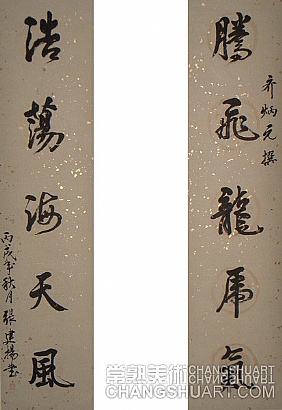 騰飛龍虎氣
齐炳元撰
浩蕩海天風
丙戌年秋月張建揚書
常熟美術 CHANGSHUART
CHANGSHUART.COM